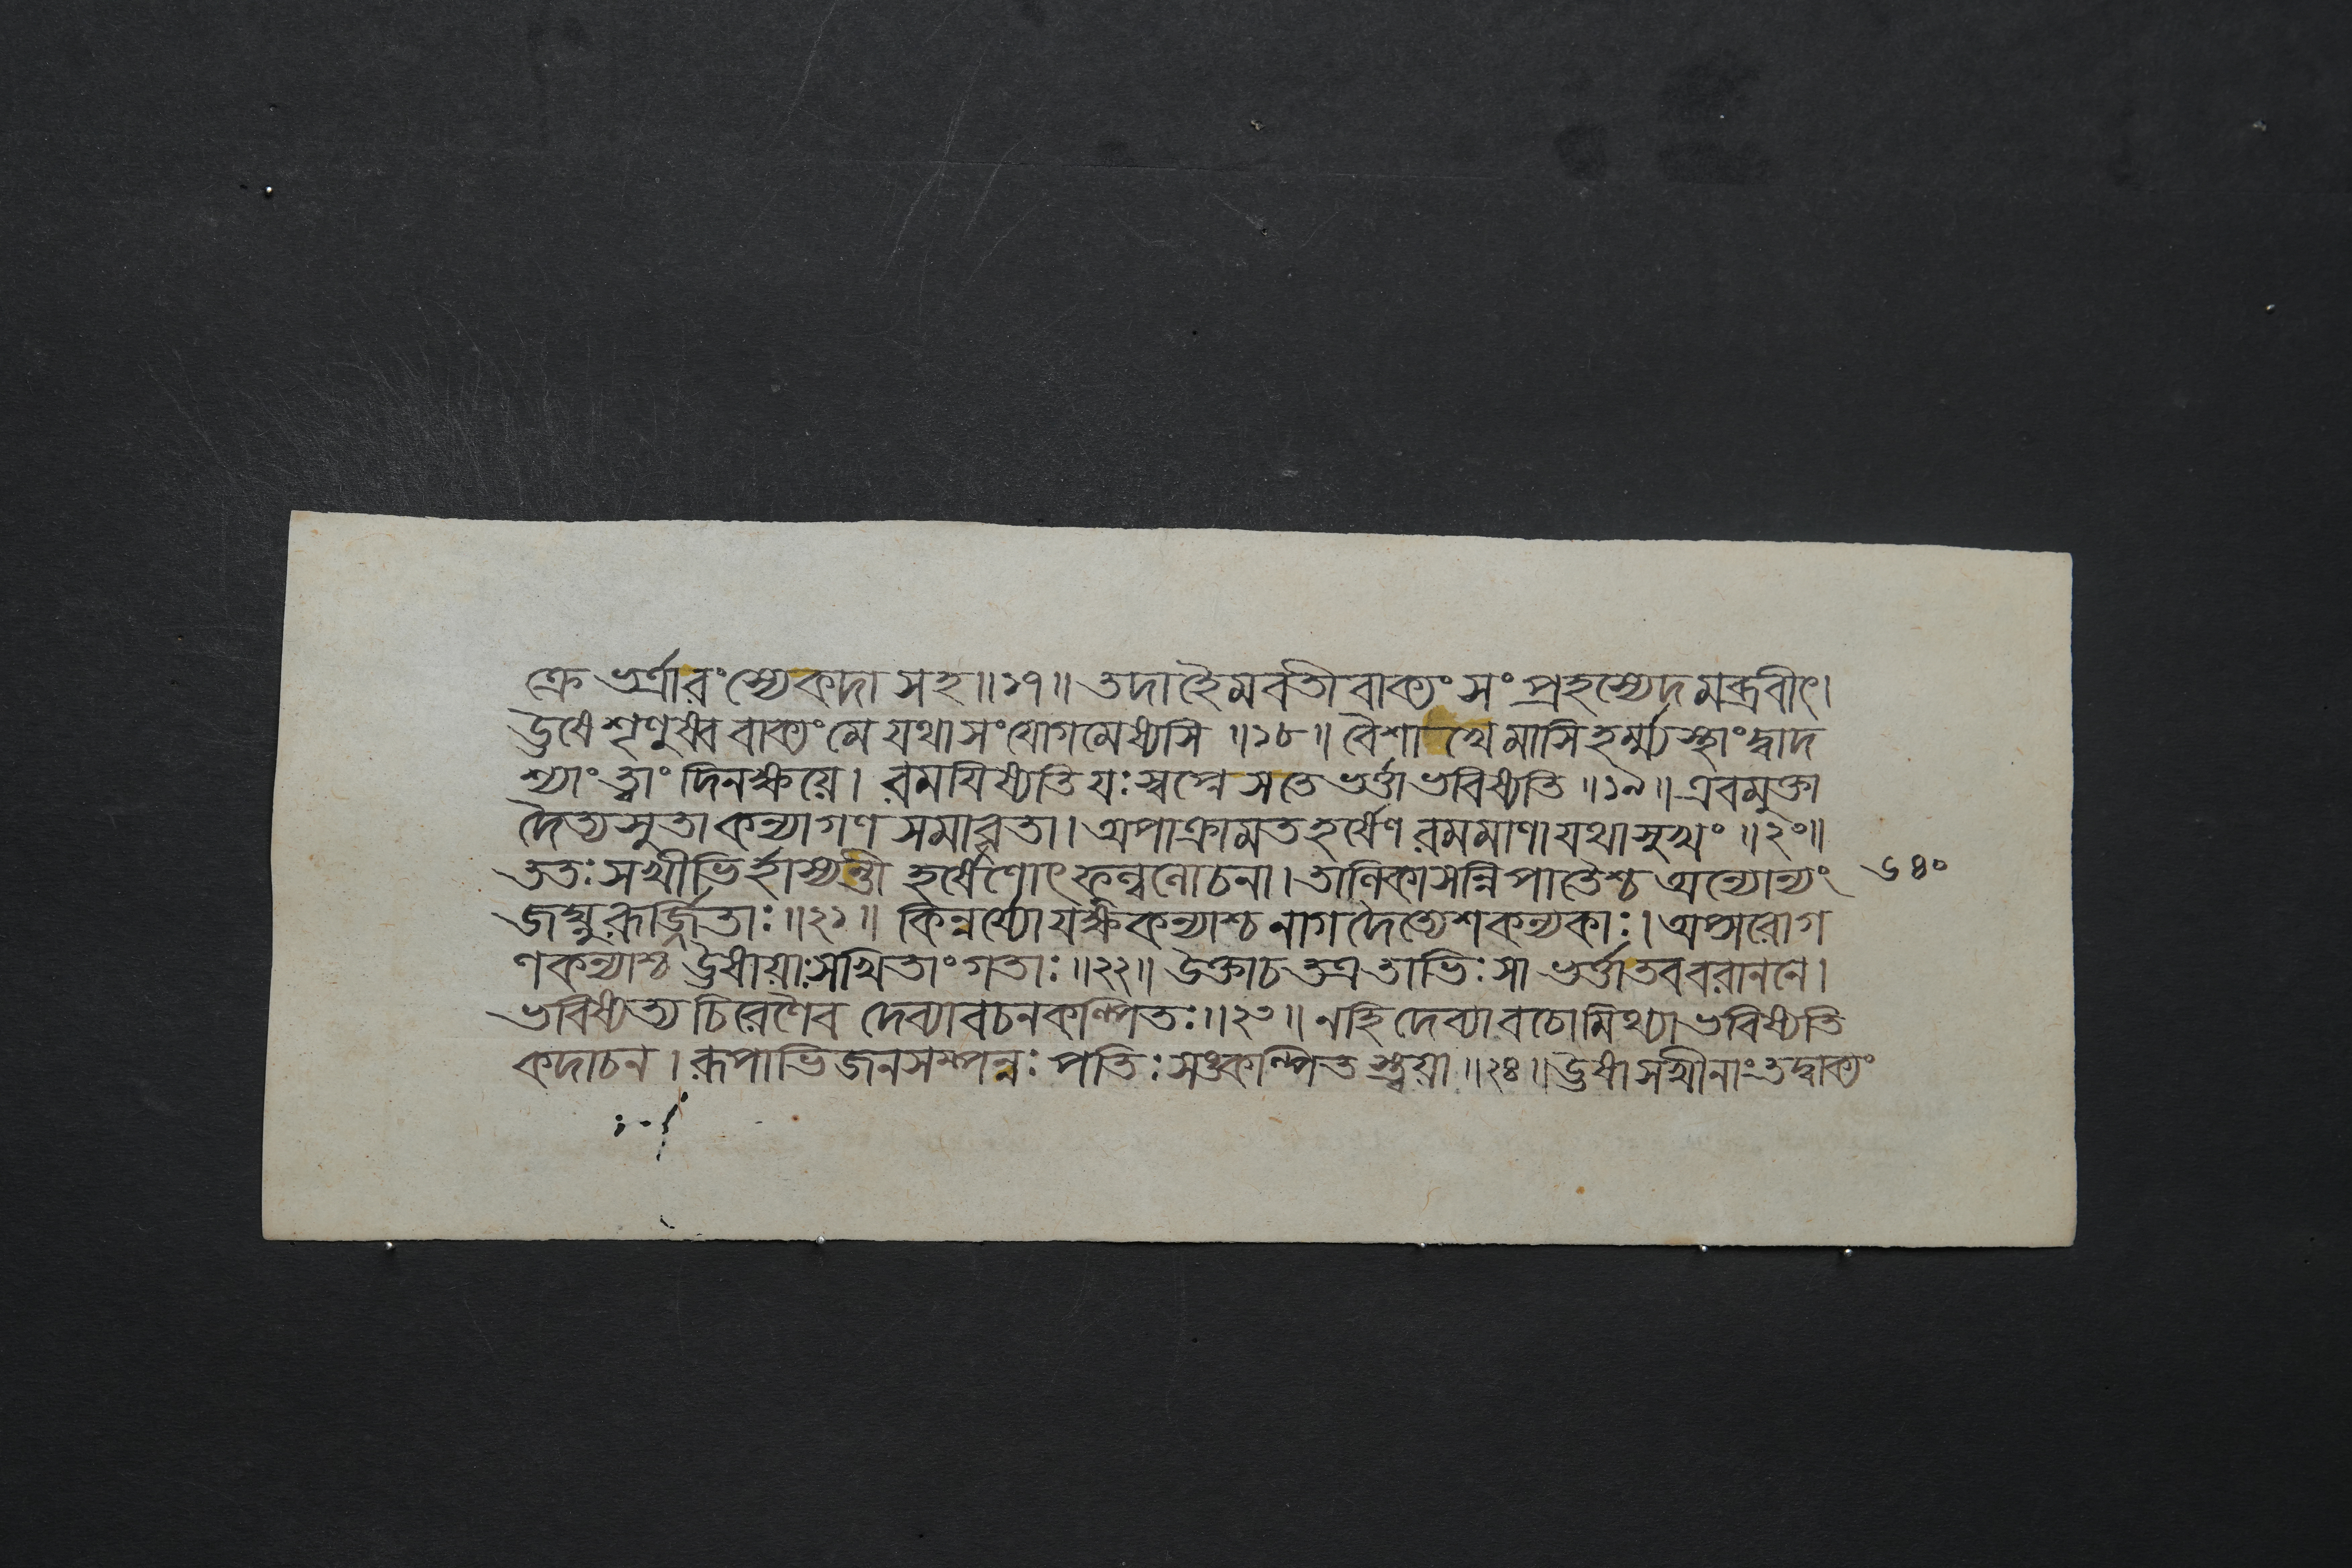 ক্রে ভর্ত্রারংস্যেকদা সহ॥১৭॥ তদাহৈমবতী বাক্যং সংপ্রহস্যেদমব্রবীৎ।
উষে শৃণুষ্ব বাক্যং মে যথাসংযোগমেষ্যসি॥১৮॥ বৈশাখে মাসি হর্ম্ম্যস্থাং দ্বাদ
শ্যাং ত্বাং দিনক্ষয়ে। রময়িষ্যতি যঃ স্বপ্নে সতে ভর্ত্তা ভবিষ্যতি॥১৯॥ এবমুক্তা
দৈত্যসুতা কন্যাগণ সমাবৃতা। অপাক্রামত হর্ষেণ রমমাণা যথাসুখং॥২০॥
ততঃ সখীভির্হাস্যন্তী হর্ষেণোৎফুল্ললোচনা। তালিকাসন্নিপাতৈশ্চ অন্যোন্যং
৬৪০
জঘ্নুরূর্জ্জিতাঃ॥২১॥ কিন্নর্য্যো যক্ষকন্যাশ্চ নাগদৈত্যেশকন্যকাঃ। অপ্সরোগ
ণকন্যাশ্চ উষায়াঃ সখিতাং গতাঃ॥২২॥ উক্তাচ তত্র তাভিঃ সা ভর্ত্তা তব বরাননে।
ভবিষ্যত্য চিরেণৈব দেব্যাবচনকল্পিতঃ॥২৩॥ নহি দেব্যা বচো মিথ্যা ভবিষ্যতি
কদাচন। রূপাভিজনসম্পন্নঃ পতিঃ সঙ্কল্পিতস্ত্বয়া॥২৪॥ উষা সখীনাং তদ্বাক্যং